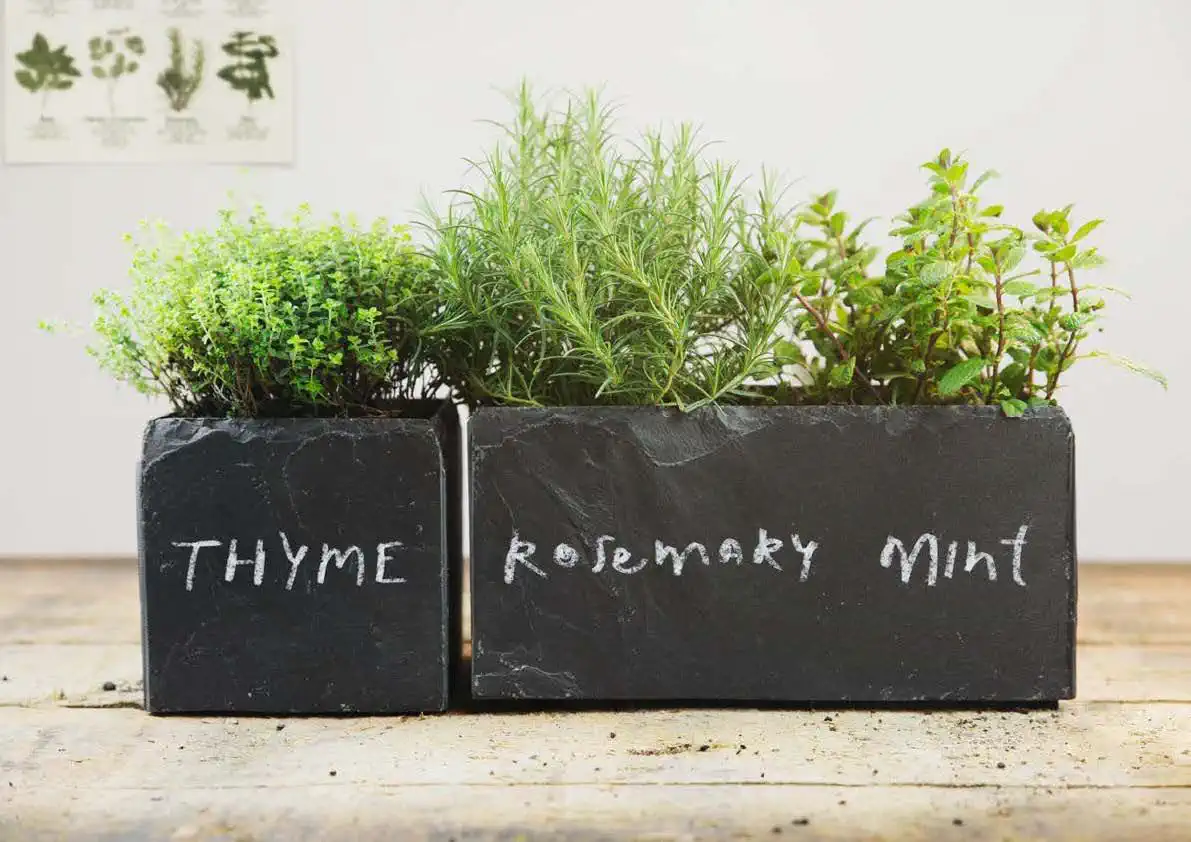 THYME
Rosemary Mint